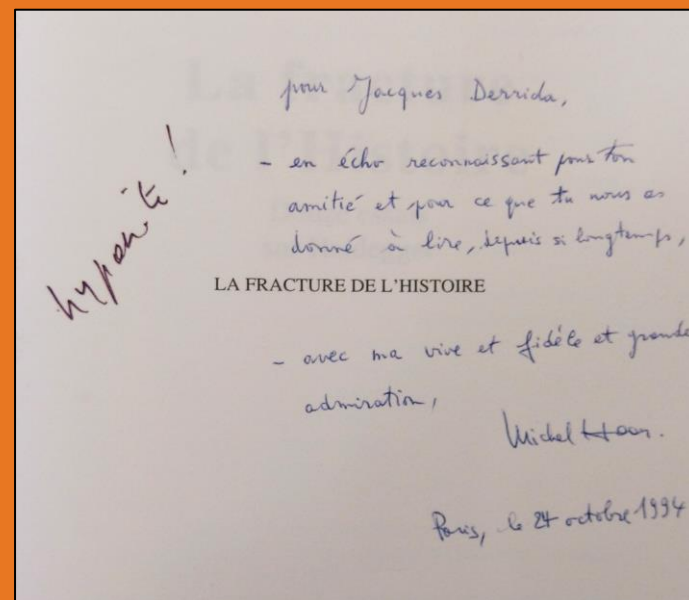 pour Jacques Derrida,
- en écho reconnaissant pour ton
amitié et pour ce que tu nous as
donné à lire, depuis si longtemps,
hypocrite !
LA FRACTURE DE L'HISTOIRE
- avec ma vive et fidèle et grande
admiration,
Michel Haar.
Paris, le 24 octobre 1994
La fracture
de l'Histoire